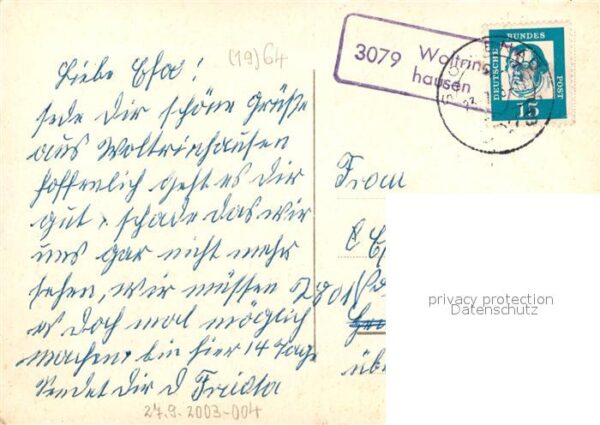 (19)64
Liebe Esa!
sende Dir schöne Grüße
aus Woltringhausen
hoffentlich geht es Dir
gut, schade das wir
uns gar nicht mehr
sehen, wir müssen
es doch mal möglich
machen bin hier 14 Tage
sendet Dir d Frieda
27.9.2003-004
3079 Woltring
hausen
DEUTSCHE BUNDESPOST
15
Frau
2801
übe
privacy protection
Datenschutz